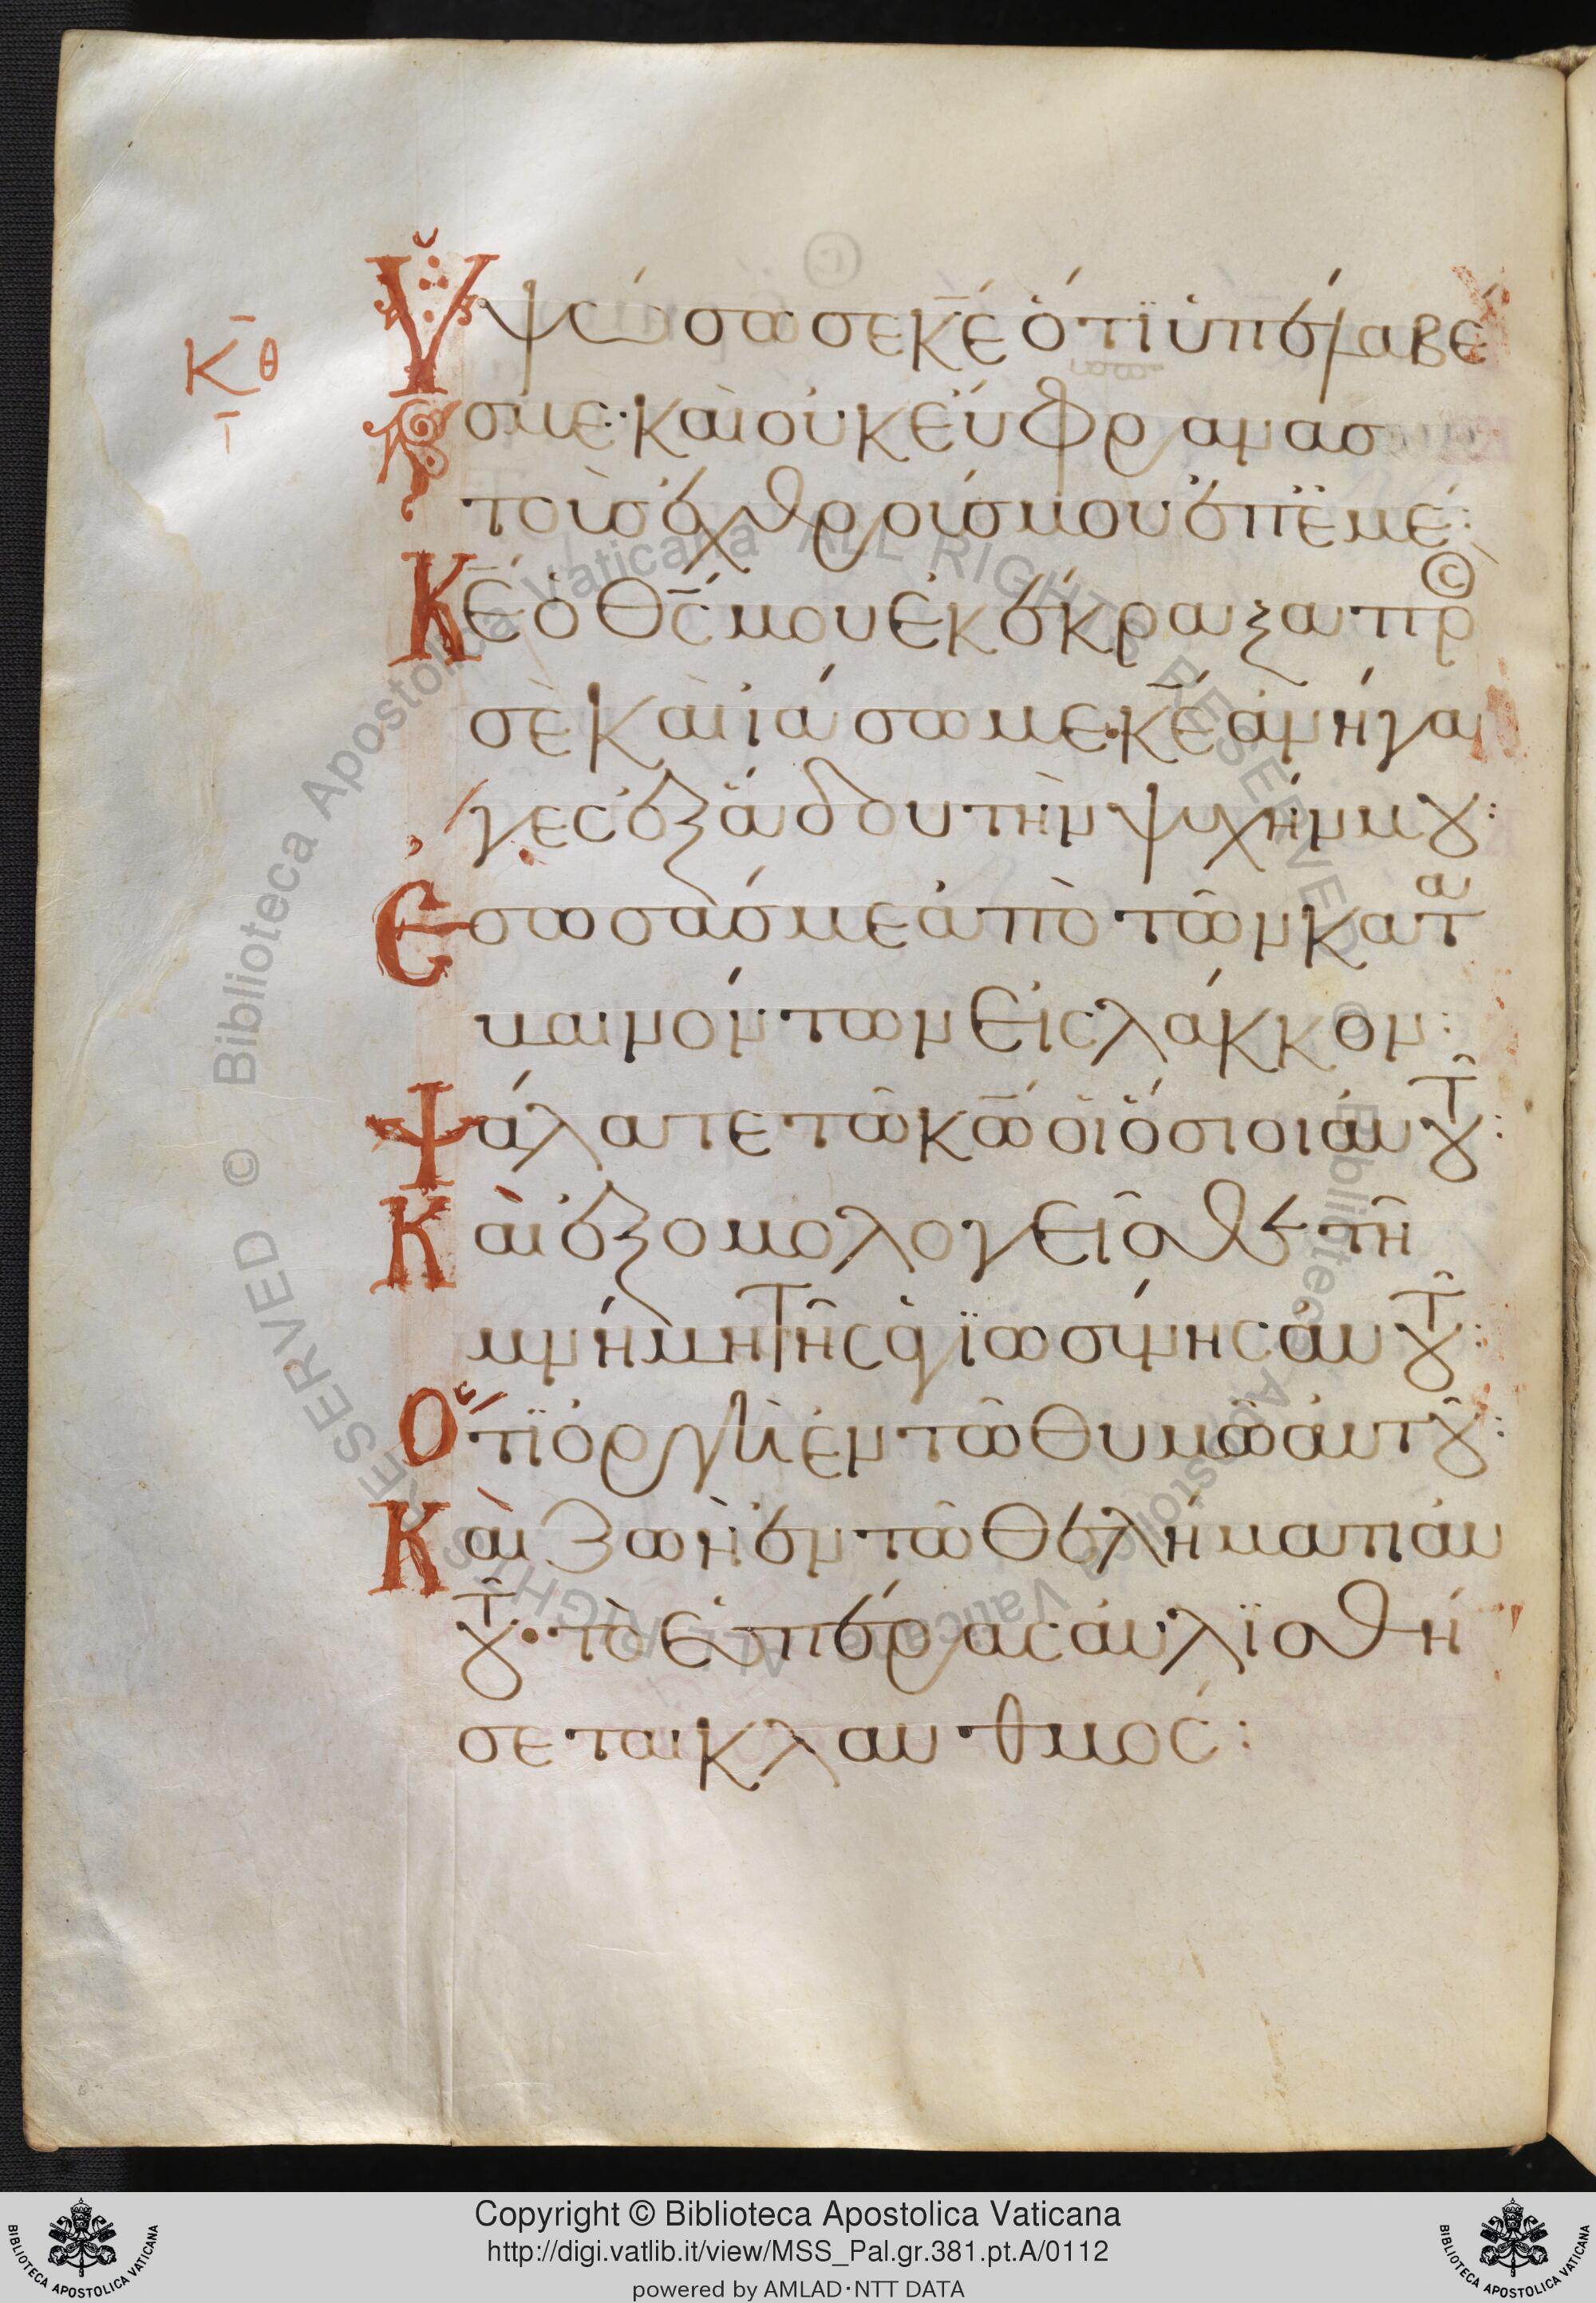 Κθ
Ὑψώσω σε κ̅ε̅ ὅτι ὑπέλαβέ
σ με· καὶ οὐκ εὔφρανασ
τοὺσ ἐχθρούσ μου ἐπ ἐμέ:
Κ̅ε̅ ὁ θ̅ς̅ μου ἐκέκραξα πρ(ο)ς
σὲ καὶ ἰάσω με· κ̅ε̅ ἀνήγα
γες ἐξ ἅδου τὴν ψυχήν μου:
Ἔσωσάσ με ἀπὸ τῶν κατα
βαινόντων εἰς λάκκον:
Ψάλατε τῶ κ̅ω̅ οἱ ὅσιοι ἀυτοῦ:
Καὶ ἐξομολογεῖσθε τῆ
μνήμη τῆς ἁγιωσύνης ἀυτοῦ:
Ὅτι ὀργὴ ἐν τῶ θυμῶ ἀυτοῦ:
Καὶ ζωὴ ἐν τῶ θελήματι ἀυ
τοῦ· τὸ ἑσπέρας ἀυλισθή
σεται κλαυθμός:
© Biblioteca Apostolica Vaticana ALL RIGHTS RESERVED © Biblioteca Apostolica Vaticana ALL RIGHTS RESERVED
Copyright © Biblioteca Apostolica Vaticana
http://digi.vatlib.it/view/MSS_Pal.gr.381.pt.A/0112
powered by AMLAD·NTT DATA
BIBLIOTECA APOSTOLICA VATICANA
BIBLIOTECA APOSTOLICA VATICANA